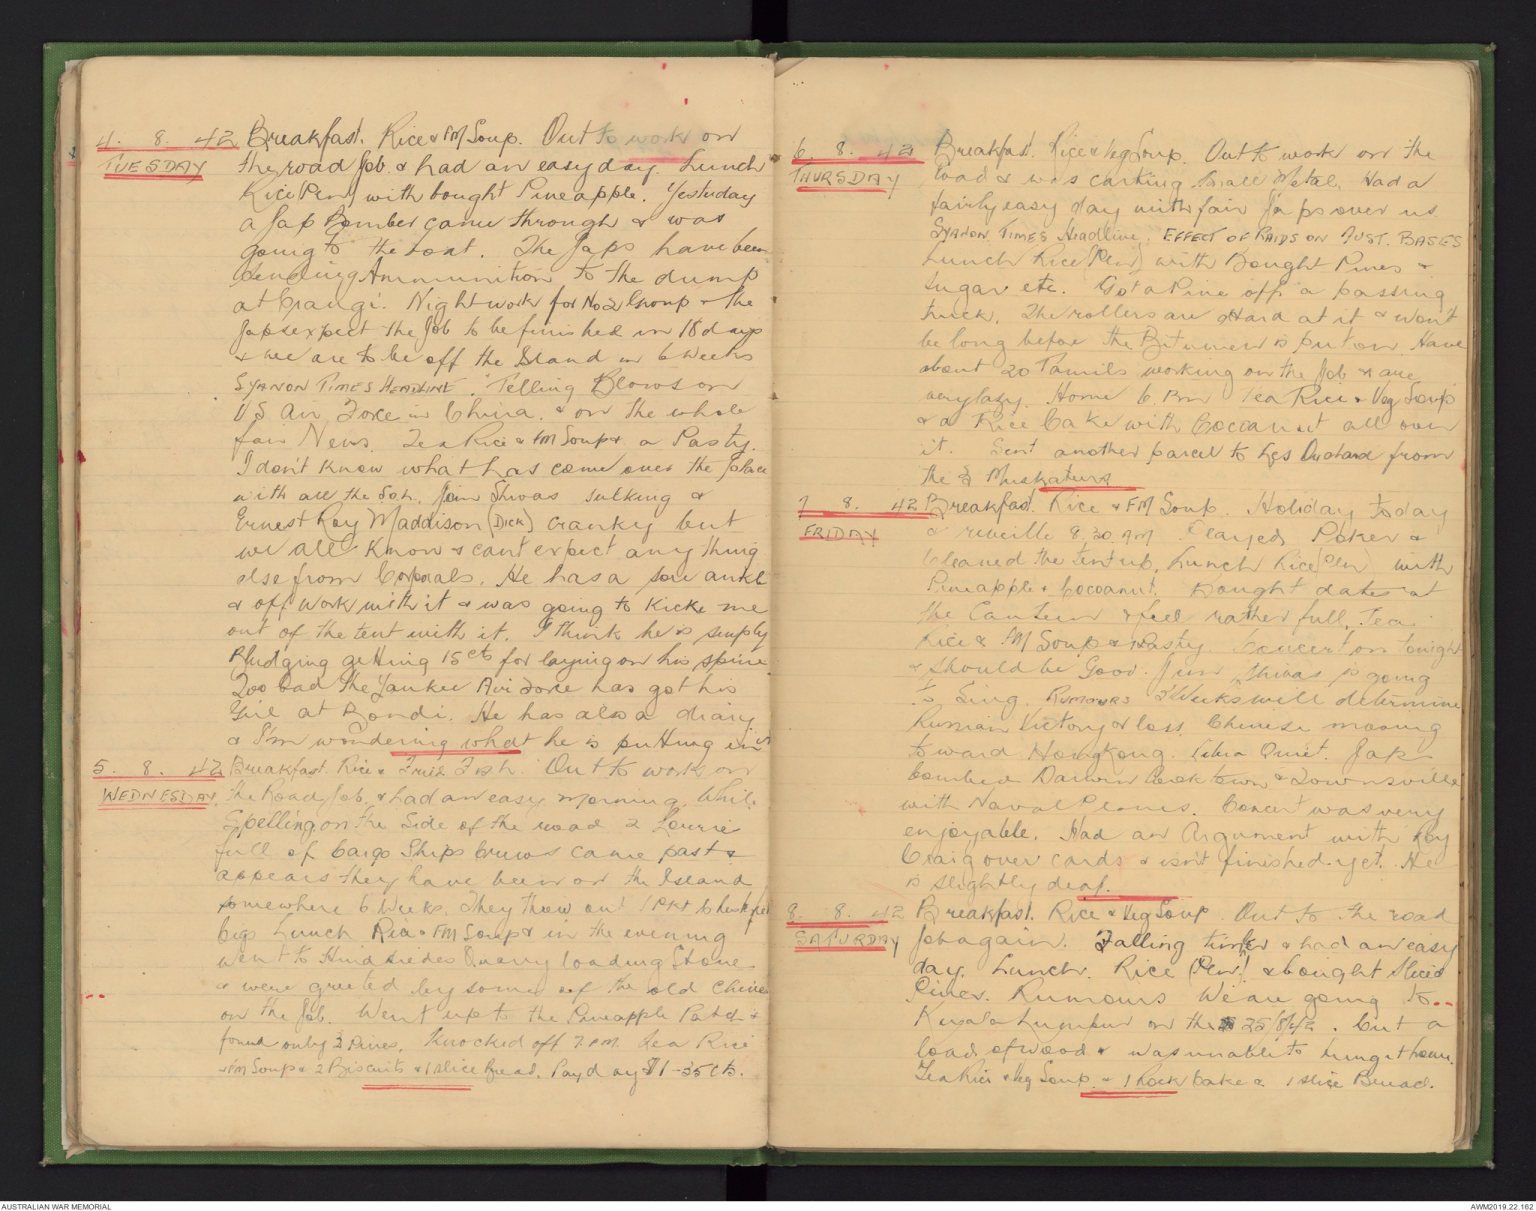 4. 8. 42 Breakfast. Rice & FM Soup. Out to work on
TUESDAY the road Job & had an easy day. Lunch
Rice (Plen) with bought Pineapple. Yesterday
a Jap Bomber came through & was
going to the boat. The Japs have been
sending Ammunition to the dump
at Crangi. Night work for No 2 Group & the
Japs expect the Job to be finished in 18 days
& we are to be off the Island in 6 weeks
SYANON TIMES HEADLINE. Telling Blows on
US Air Force in China. & on the whole
fair News. Tea Rice & FM Soup & a Pasty.
I don't know what has come over the place
with all the Sgts. Jim Shivas sulking &
Ernest Roy Maddison (DICK) cranky but
we all know & cant expect any thing
else from Corporals. He has a sore ankle
& off work with it & was going to Kicke me
out of the tent with it. I think he is simply
Bludging getting 15 cts for laying on his spine
Too bad the Yankee Air Force has got his
Girl at Bondi. He has also a diary
& I'm wondering what he is putting in it
5. 8. 42 Breakfast. Rice & Fried Fish. Out to work on
WEDNESDAY. the Road Job, & had an easy morning. While
Spelling on the Side of the road 2 Lorries
full of Cargo Ships Crews came past &
appears they have been on the Island
somewhere 6 Weeks. They threw out 1 PKT
Cigs Lunch Rice & FM Soup & in the evening
went to Quarry loading Stone
& were greeted by some of the old Chine
on the Job. Went up to the Pineapple Patch &
found only 3 Pines. Knocked off 7. P.M. Tea Rice
& FM Soup & 2 Biscuits & 1 slice Bread. Payday $1-35 cts.
6. 8. 42 Breakfast. Rice & Veg Soup. Out to work on the
THURSDAY Road & was carting Small Metal. Had a
fairly easy day with fair Japs over us
SYANON TIMES Headline. EFFECT OF RAIDS ON AUST. BASES
Lunch Rice (Plen) with Bought Pines &
Sugar etc. Got a Pine off a passing
truck. The rollers are Hard at it & won't
be long before the Bitumen is put on. Have
about 20 Tamils working on the Job & are
very lazy. Home 6. P.m Tea Rice & Veg Soup
& a Rice Cake with Cocoanut all over
it. Sent another parcel to Les Orchard from
the 3 Musketeers
7 8. 42 Breakfast. Rice & FM Soup. Holiday today
FRIDAY & reveille 8.30 AM Played Poker &
Cleaned the tent up. Lunch Rice (Plen) with
Pineapple & Cocoanut. Bought dates at
the Canteen & feel rather full. Tea.
Rice & FM Soup & 1 Pasty. Concert on tonight
& should be Good. Jim Shivas is going
to Sing. RUMOURS 3 Weeks will determine
Russian Victory or loss. Chinese moving
toward HongKong. Libia Quiet. Japs
bombed Darwin Cooktown & Townsville
with Naval Planes. Concert was very
enjoyable. Had an Argument with Roy
Craig over cards & isn't finished yet. He
is slightly deaf.
8. 8. 42 Breakfast. Rice & Veg Soup. Out to the road
SATURDAY Job again. Falling timber & had an easy
day. Lunch. Rice (Plen) & bought Sliced
Pines. Rumours We are going to
Kuala Lumpur on the 25/8/42. Cut a
load of wood & was unable to bring it home.
Tea Rice & Veg Soup. & 1 Rock Cake & 1 slice Bread.
AUSTRALIAN WAR MEMORIAL
AWM2019.22.162